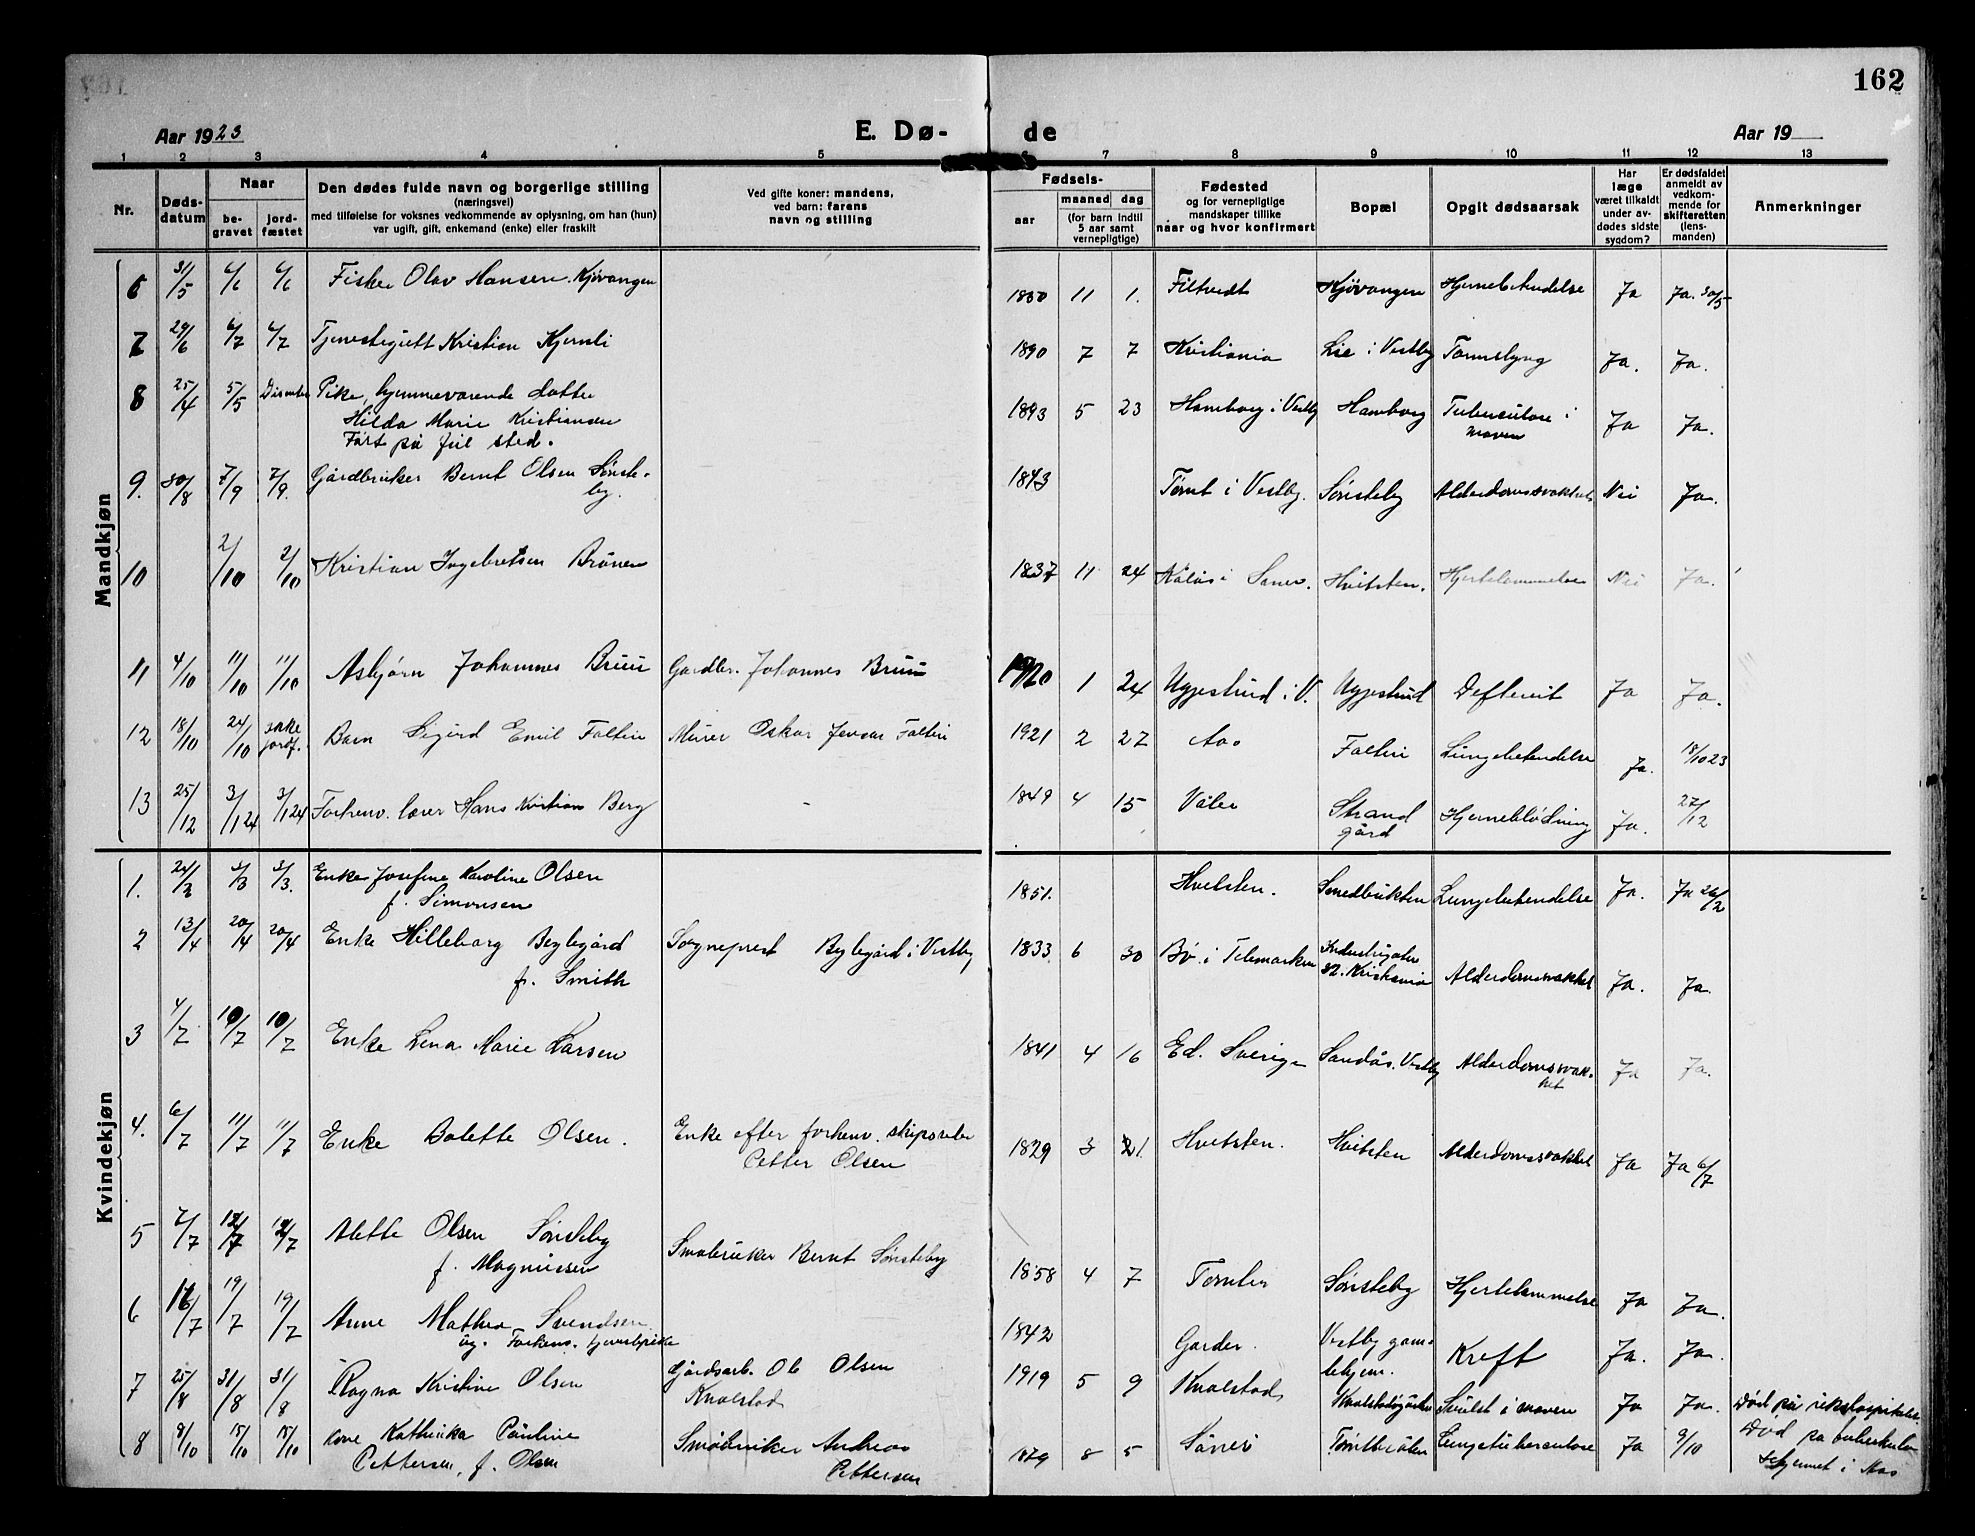 162
Aar 1923
E. Dø-
de
Aar 19
1 2 3 4 5 6 7 8 9 10 11 12 13
Nr.
Døds-
datum
Naar
be-
gravet
jord-
fæstet
Den dødes fulde navn og borgerlige stilling
(næringsvei)
med tilføielse for voksnes vedkommende av oplysning, om han (hun)
var ugift, gift, enkemand (enke) eller fraskilt
Ved gifte koner: mandens,
ved barn: farens
navn og stilling
Fødsels-
aar
maaned dag
(for barn indtil
5 aar samt
vernepligtige)
Fødested
og for vernepligtige
mandskaper tillike
naar og hvor konfirmert
Bopæl
Opgit dødsaarsak
Har
læge
været tilkaldt
under av-
dødes sidste
sygdom?
Er dødsfaldet
anmeldt av
vedkom-
mende for
skifteretten
(lens-
manden)
Anmerkninger
Mandkjøn
6 31/5 6/6 6/6 Fisker Olav Hansen. Kjøvangen 1850 11 1. Filtvedt Kjøvangen Hjernebetendelse Ja Ja. 30/5
7 29/6 6/7 6/7 Tjenestegutt Kristian Kjernli 1890 7 7 Kristiania Lie i Vestby Ja. Ja.
8 25/4 5/5 Pike, hjemmeværende datter 1893 5 23 Hamborg i Vestby Hamborg Tuberculose i
Hilda Marie Kristiansen maven Ja Ja.
Ført på feil sted.
9. 30/8 7/9 7/9. Gårdbruker Bernt Olsen Sønste- 1843 Tømt i Vestby. Sønsteby Alderdomssvakhet Nei Ja.
by.
10 2/10 2/10 Kristian Ingebretsen Brønen 1837 11 24 Hvitsten. Hjertelammelse Nei Ja.
11 4/10 11/10 11/10 Asbjørn Johannes Bruu Gardbr. Johannes Bruu 1920 1 24 Uggestrud i V. Uggestrud Defterit Ja Ja.
12 18/10 24/10 ikke
jordf. Barn Sigurd Emil Faltin Murer Oskar Jensen Faltin 1921 2 27 Aas Faltin Lungebetendelse Ja. 18/10 23
13 25/12 3/1 24 3/1 24 Forhenv. lærer Hans Kristian Berg - 1849 4 15 Våler Strand
gård Hjerneblødning Ja. 27/12
Kvindekjøn
1. 24/2 3/3 3/3. Enke Josefine Karoline Olsen 1851. Hvitsten. Smedbukten Lungebetendelse Ja. Ja 26/2
f. Simonsen
2 13/4 20/4 20/4 Enke Hilleborg Beylegård Sogneprest Beylegård i Vestby 1833 6 30 Bø i Telemarken Industrigaten
Kristiania Alderdomssvakhet Ja. Ja.
f. Smith
3 4/7 10/7 10/7 Enke Lena Marie Larsen 1841 4 16 Ed. Sverige Sandås. Vestby Alderdomssvak-
het Ja Ja.
4. 6/7 11/7 11/7 Enke Bolette Olsen. Enke efter forhenv. skipsreder
Petter Olsen 1829 3 21. Hvitsten. Hvitsten Alderdomssvakhet Ja Ja 6/7
5 7/7 12/7 12/7 Alette Olsen Sønsteby
f. Magnussen Småbruker Bernt Sønsteby 1858 4 7 Tomter Sønsteby Hjertelammelse Ja Ja.
6 16/7 19/7 19/7 Anne Mathea Svendsen
ug. Forhenv. tjenestepike 1842 Garder. Vestby gam-
lehjem. Kreft Ja. Ja.
7 25/8 31/8 31/8 Ragna Kristine Olsen Gårdsarb. Ole Olsen
Knalstad 1919 5 9 Knalstad Svulst i maven Ja Ja. Død på rikshospitalet
8 9/10 15/10 15/10 Kone Kathinka Pauline
Pettersen, f. Olsen Småbruker Andreas
Pettersen 1879 8 5 Såner Lungetuberculose Ja 9/10 Død på tuberkulo-
sehjemmet i Mos